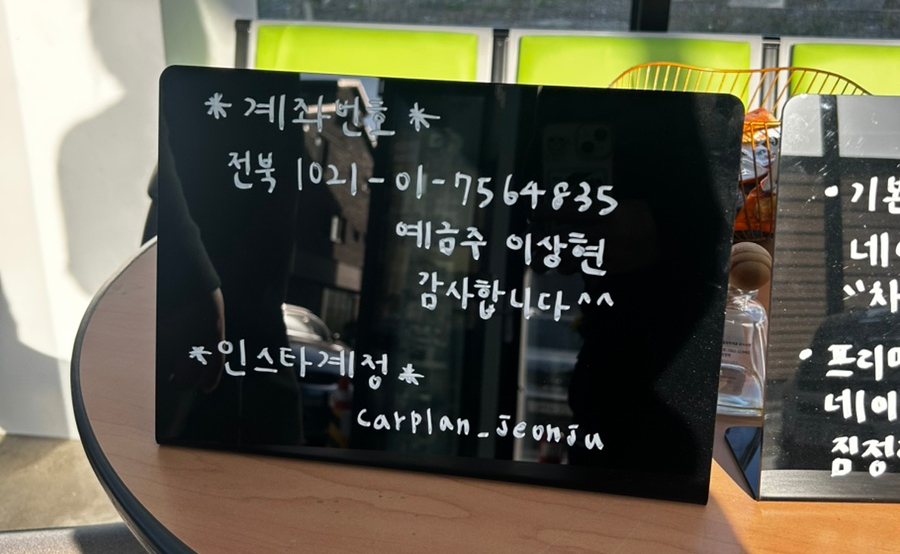 * 계좌번호 *
전북 1021-01-7564835
예금주 이상현
감사합니다^^
*인스타계정*
carplan_jeonju
• 기본
네이
"차
• 프리미
네이
짐정